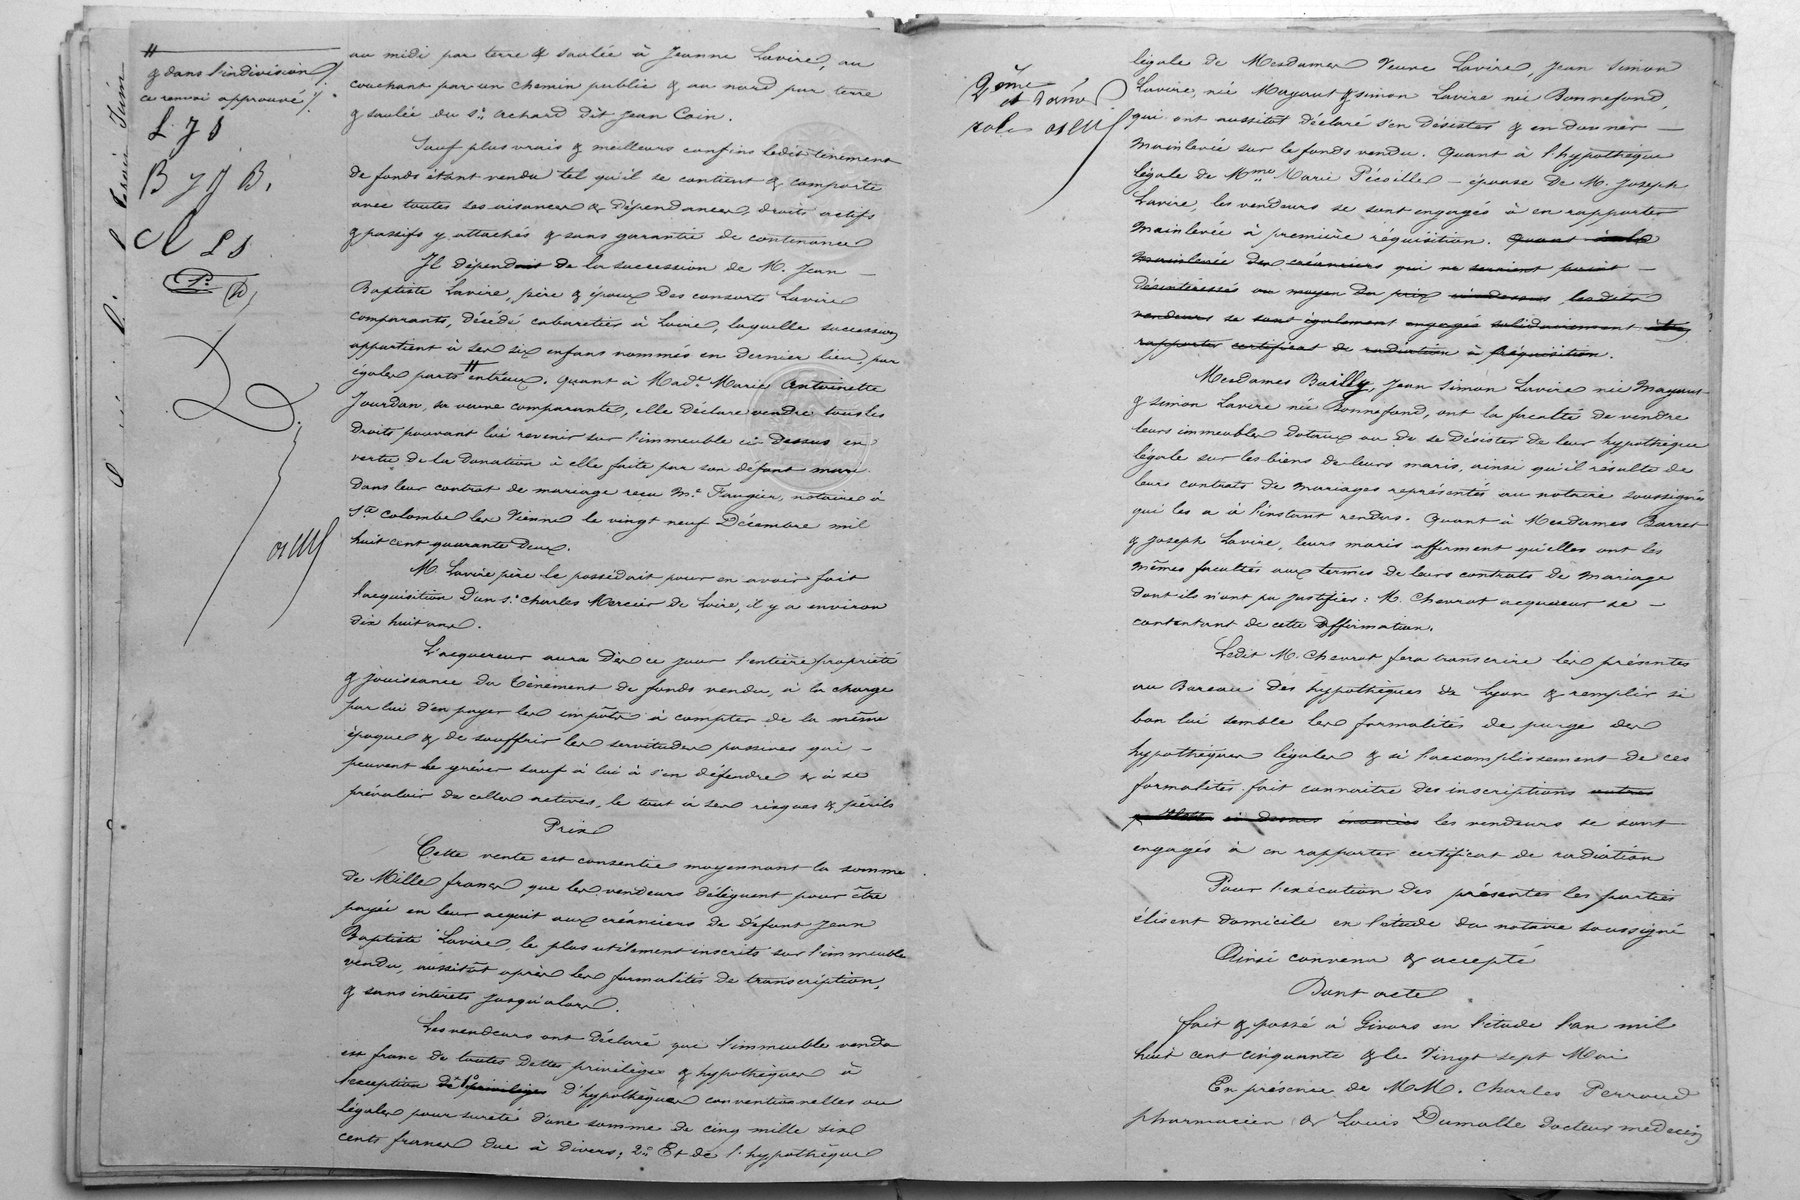 & dans l'indivision
ce renvoi approuvé
L J S
B J J B.
L S
au midi par terre & saulée à Jeanne Lavire, au
couchant par un chemin public & au nord par terre
& saulée du Sr. Achard dit Jean Coin.
Sauf plus vrais & meilleurs confins ledit tènement
de fonds étant vendu tel qu'il se contient & comporte
avec toutes ses aisances & dépendances, droits actifs
& passifs y attachés & sans garantie de contenance
Il dépendait de la succession de M. Jean –
Baptiste Lavire, père & époux des consorts Lavire
comparants, décédé cabaretier à Loire, laquelle succession
appartient à ses six enfans nommés en dernier lieu, par
égales parts " entr'eux. Quant à Made. Marie Antoinette
Jourdan, sa veuve comparante, elle déclare vendre tous les
droits pouvant lui revenir sur l'immeuble ci-dessus en
vertu de la donation à elle faite par son défunt mari
dans leur contrat de mariage reçu Me. Faugier, notaire à
Ste Colombe les Vienne le vingt neuf Décembre mil
huit cent quarante deux.
M. Lavire père le possédait pour en avoir fait
l'acquisition d'un Sr. Charles Mercier de Loire, il y a environ
dix huit ans.
L'acquéreur aura dès ce jour l'entière propriété
& jouissance du tènement de fonds vendu, à la charge
par lui d'en payer les impôts à compter de la même
époque & de souffrir les servitudes passives qui –
peuvent le gréver sauf à lui à s'en défendre & à se
prévaloir de celles actives, le tout à ses risques & périls
Prix
Cette vente est consentie moyennant la somme
de Mille francs que les vendeurs délèguent pour être
payée en leur acquit aux créanciers de défunt Jean
Baptiste Lavire, le plus utilement inscrits sur l'immeuble
vendu, aussitôt après les formalités de transcription,
& sans intérêts jusqu'alors.
Les vendeurs ont déclaré que l'immeuble vendu
est franc de toutes dettes privilèges & hypothèques à
l'exception de 1° privilèges d'hypothèques conventionnelles ou
légales pour sureté d'une somme de cinq mille six
cents francs due à divers; 2° Et de l'hypothèque
2ème
et dernier
rôle
légale de Mesdames Veuve Lavire, Jean Simon
Lavire, née Mayaut & Simon Lavire née Bonnefond,
qui ont aussitôt déclaré s'en désister & en donner –
mainlevée sur le fonds vendu. Quant à l'hypothèque
légale de Mme Marie Pécoille – épouse de M. Joseph
Lavire, les vendeurs se sont engagés à en rapporter
mainlevée à première réquisition. Quant à la
mainlevée des créanciers qui ne seraient point –
désintéressés au moyen du prix ci-dessus lesdits
vendeurs se sont également engagés solidairement à en
rapporter certificat de radiation à réquisition.
Mesdames Bailly, Jean Simon Lavire née Mayaut
& Simon Lavire née Bonnefond, ont la faculté de vendre
leurs immeubles dotaux ou de se désister de leur hypothèque
légale sur les biens de leurs maris, ainsi qu'il résulte de
leurs contrats de mariages représentés au notaire soussigné
qui les a à l'instant rendus. Quant à Mesdames Barret
& Joseph Lavire, leurs maris affirment qu'elles ont les
mêmes facultés aux termes de leurs contrats de mariage
dont ils n'ont pu justifier: M. Chevrot acquéreur se –
contentant de cette affirmation.
Ledit M. Chevrot fera transcrire les présentes
au Bureau des hypothèques de Lyon & remplir si
bon lui semble les formalités de purge des
hypothèques légales & si l'accomplissement de ces
formalités fait connaitre des inscriptions autres
ci dessus énoncées les vendeurs se sont
engagés à en rapporter certificat de radiation
Pour l'exécution des présentes les parties
élisent domicile en l'étude du notaire soussigné
Ainsi convenu & accepté
Dont acte
fait & passé à Givors en l'étude l'an mil
huit cent cinquante & le vingt sept Mai
En présence de MM. Charles Perroud
pharmacien & Louis Dumolle docteur médecin